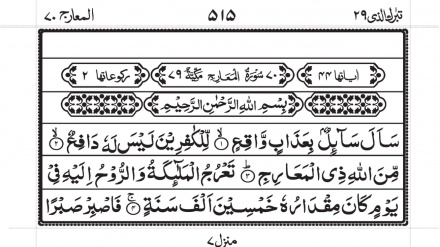 تبٰرك الذی ٢٩ ۵۱۵ المعارج ٧٠
اٰیاتها ۴۴ ٧٠ سُوْرَةُ الْمَعَارِجِ مَكِّیَّةٌ ٧٩ رکوعاتها ٢
بِسْمِ اللّٰهِ الرَّحْمٰنِ الرَّحِیْمِ
سَاَلَ سَآىِٕلٌۢ بِعَذَابٍ وَّاقِعٍ ۙ﴿۱﴾ لِّلْكٰفِرِیْنَ لَیْسَ لَهٗ دَافِعٌ ۙ﴿۲﴾
مِّنَ اللّٰهِ ذِی الْمَعَارِجِ ؕ﴿۳﴾ تَعْرُجُ الْمَلٰٓىِٕكَةُ وَالرُّوْحُ اِلَیْهِ فِیْ
یَوْمٍ كَانَ مِقْدَارُهٗ خَمْسِیْنَ اَلْفَ سَنَةٍ ۚ﴿۴﴾ فَاصْبِرْ صَبْرًا
منزل ٧